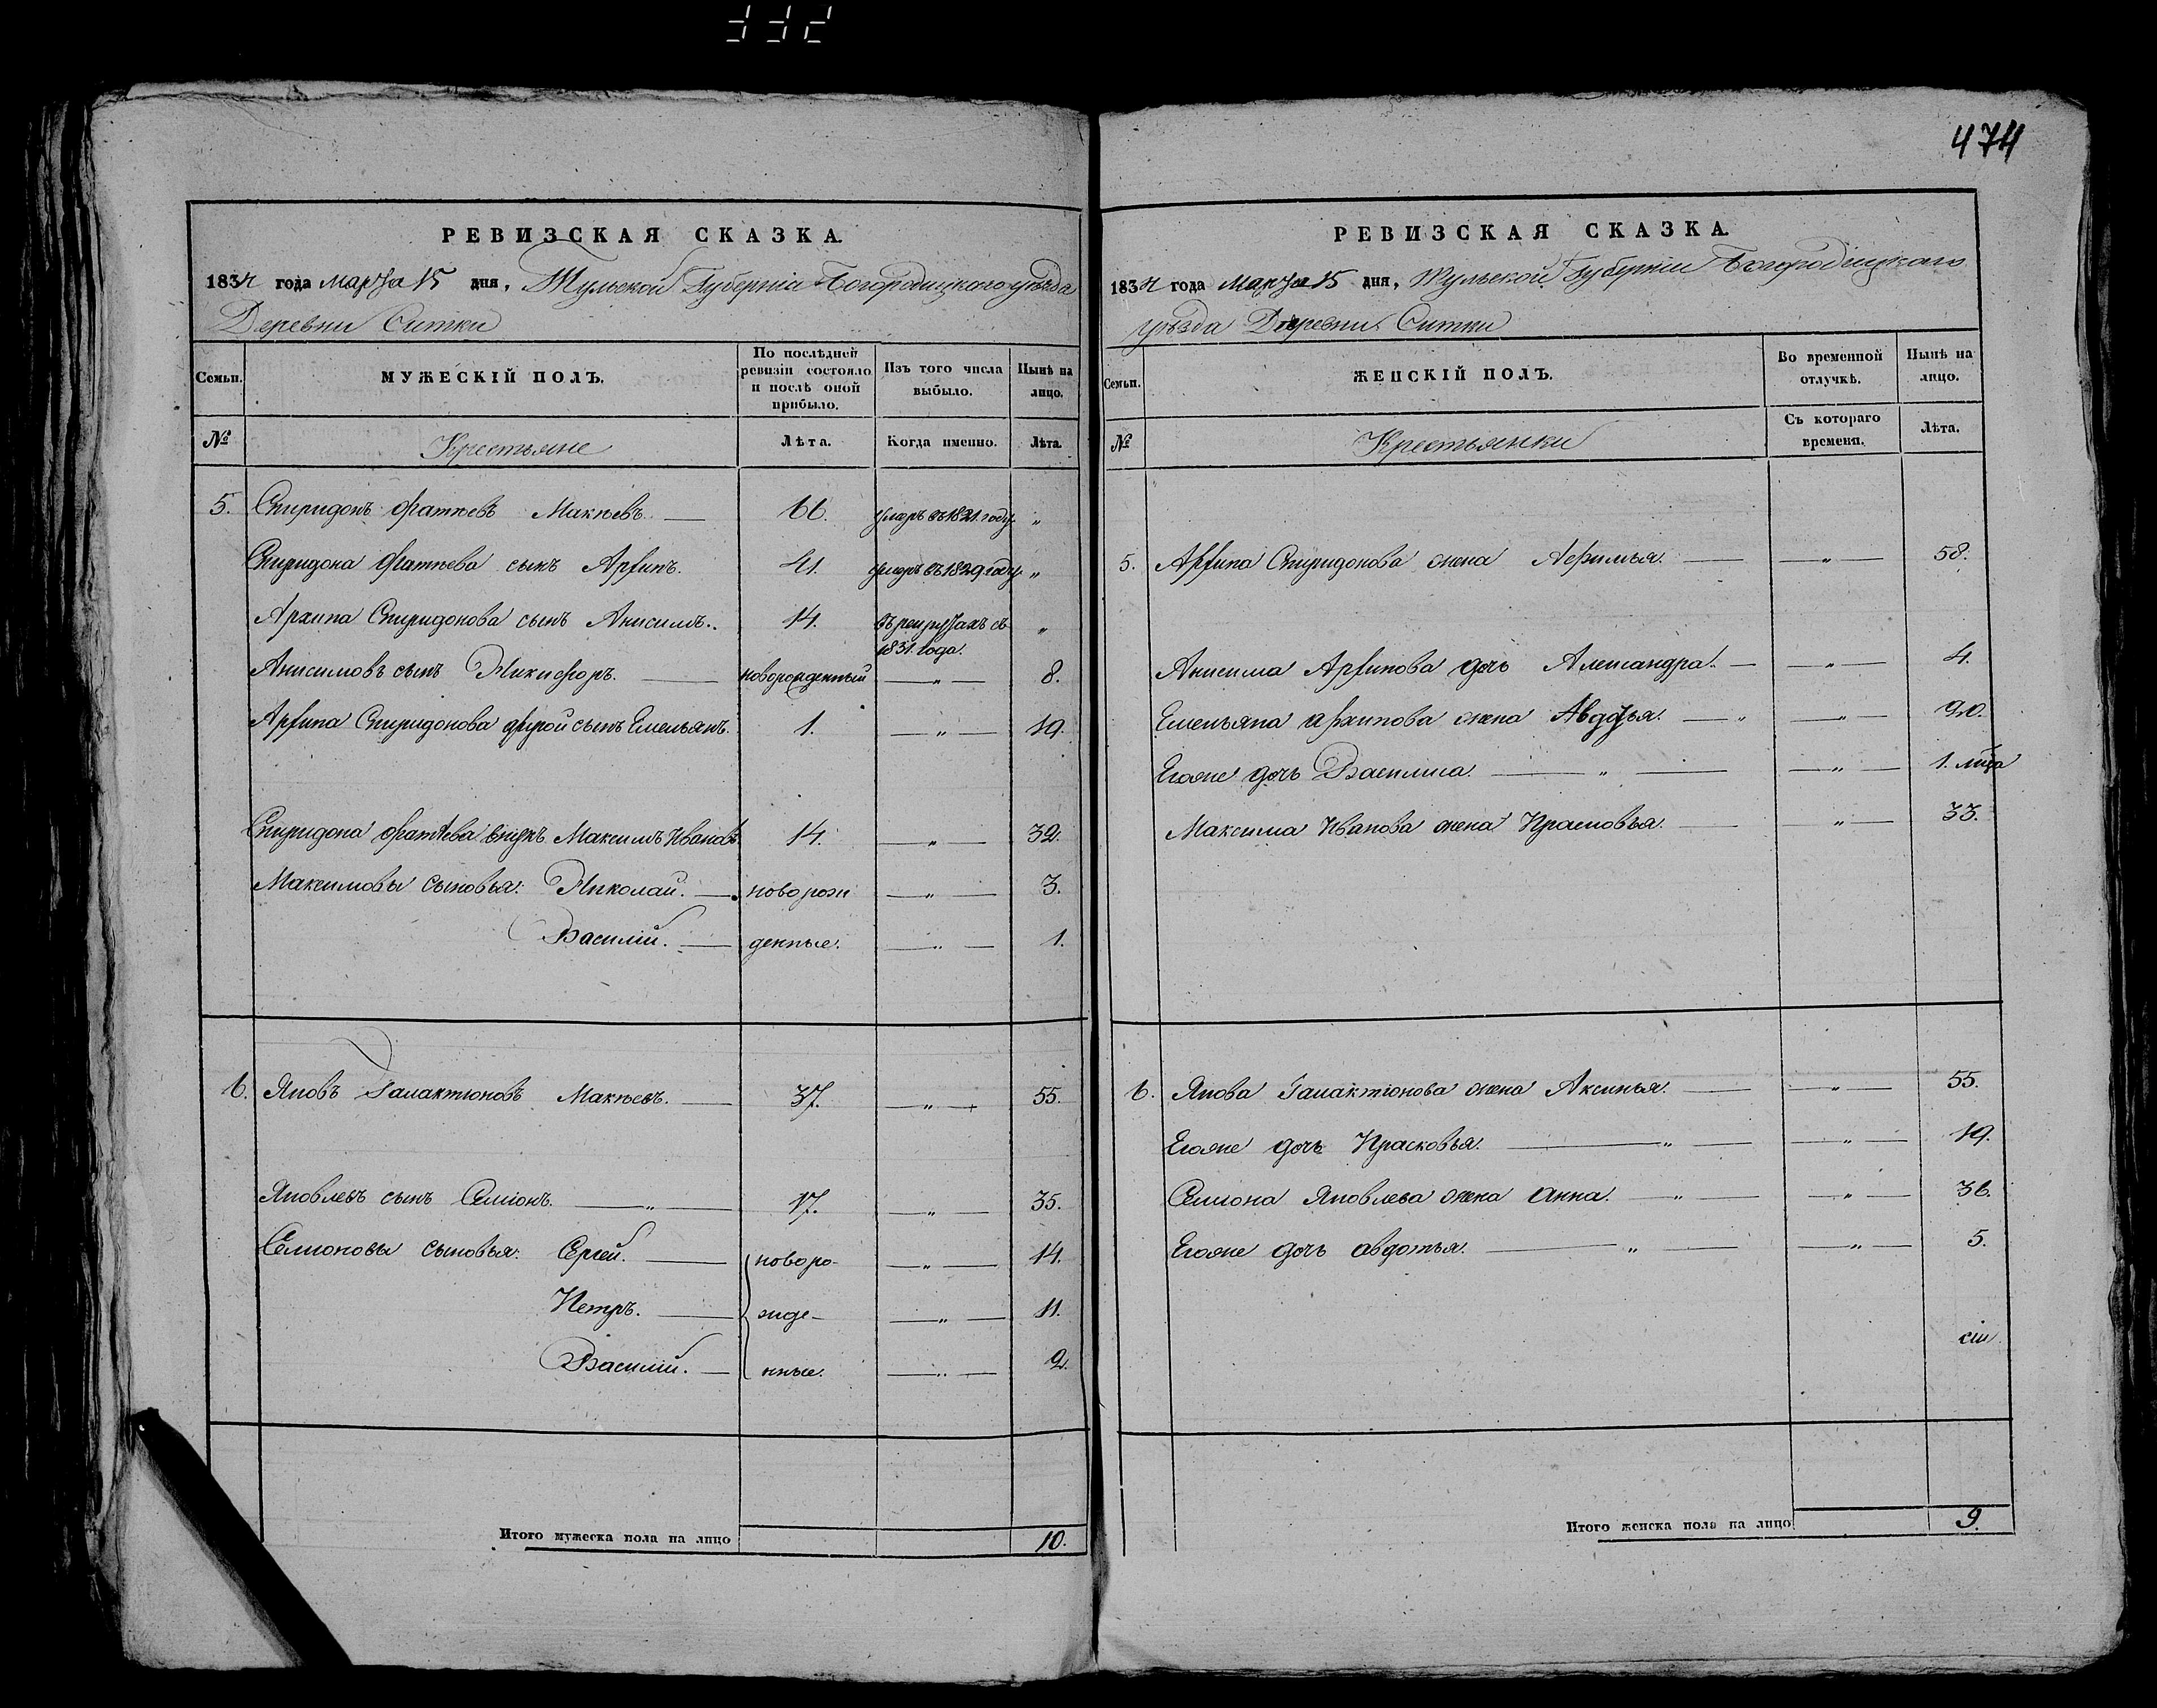 332
474
РЕВИЗСКАЯ СКАЗКА.
1834 года марта 15 дня, Тульской Губерніи Богородицкаго уѣзда
Деревни Ситки
Семьи. МУЖЕСКІЙ ПОЛЪ. По послѣдней ревизіи состояло и послѣ оной прибыло. Изъ того числа выбыло. Нынѣ на лицо.
№ Крестьяне Лѣта. Когда именно. Лѣта.
5. Спиридонъ Фатѣевъ Макѣевъ. — 66. умеръ въ 1821. году „
Спиридона Фатѣева сынъ Архипъ. 41. умеръ въ 1829 году. „
Архипа Спиридонова сынъ Анисимъ. 14. въ рекрутахъ съ 1831. года. „
Анисимовъ сынъ Никифоръ. — новорожденный — „ — 8.
Архипа Спиридонова другой сынъ Емельянъ. 1. — „ — 19.
Спиридона Фатѣева внукъ Максимъ Ивановъ. 14. — „ — 32.
Максимовы сыновья: Николай. — новорож — „ — 3.
Василій. — денные. — „ — 1.
6. Яковъ Галактіоновъ Макѣевъ. — 37. — „ — 55.
Яковлевъ сынъ Семіонъ. — „ — 17. — „ — 35.
Семионовы сыновья: Сергей. — новоро- — „ — 14.
Петръ. — жде- — „ — 11.
Василій. — нные. — „ — 2.
Итого мужеска пола на лицо 10.
РЕВИЗСКАЯ СКАЗКА.
1834 года Марта 15 дня, Тульской Губерніи Богородицкаго
уѣзда Деревни Ситки
Семьи. ЖЕНСКІЙ ПОЛЪ. Во временной отлучкѣ. Нынѣ на лицо.
№ Крестьянки Съ котораго времени. Лѣта.
5. Архипа Спиридонова жена Аефимья. — — „ — 58.
Анисима Архипова дочь Александра. — — „ — 4.
Емельяна Архипова жена Авдотья. — „ — „ — 20.
Егоже дочь Василиса. — „ — — „ — 1. мца
Максима Иванова жена Прасковья. — „ — 33.
6. Якова Галактіонова жена Аксинья. — — „ — 55.
Егоже дочь Прасковья. — „ — — „ — 19.
Семиона Яковлева жена Анна. — „ — — „ — 36.
Егоже дочь авдотья. — „ — — „ — 5.
Итого женска пола на лицо 9.